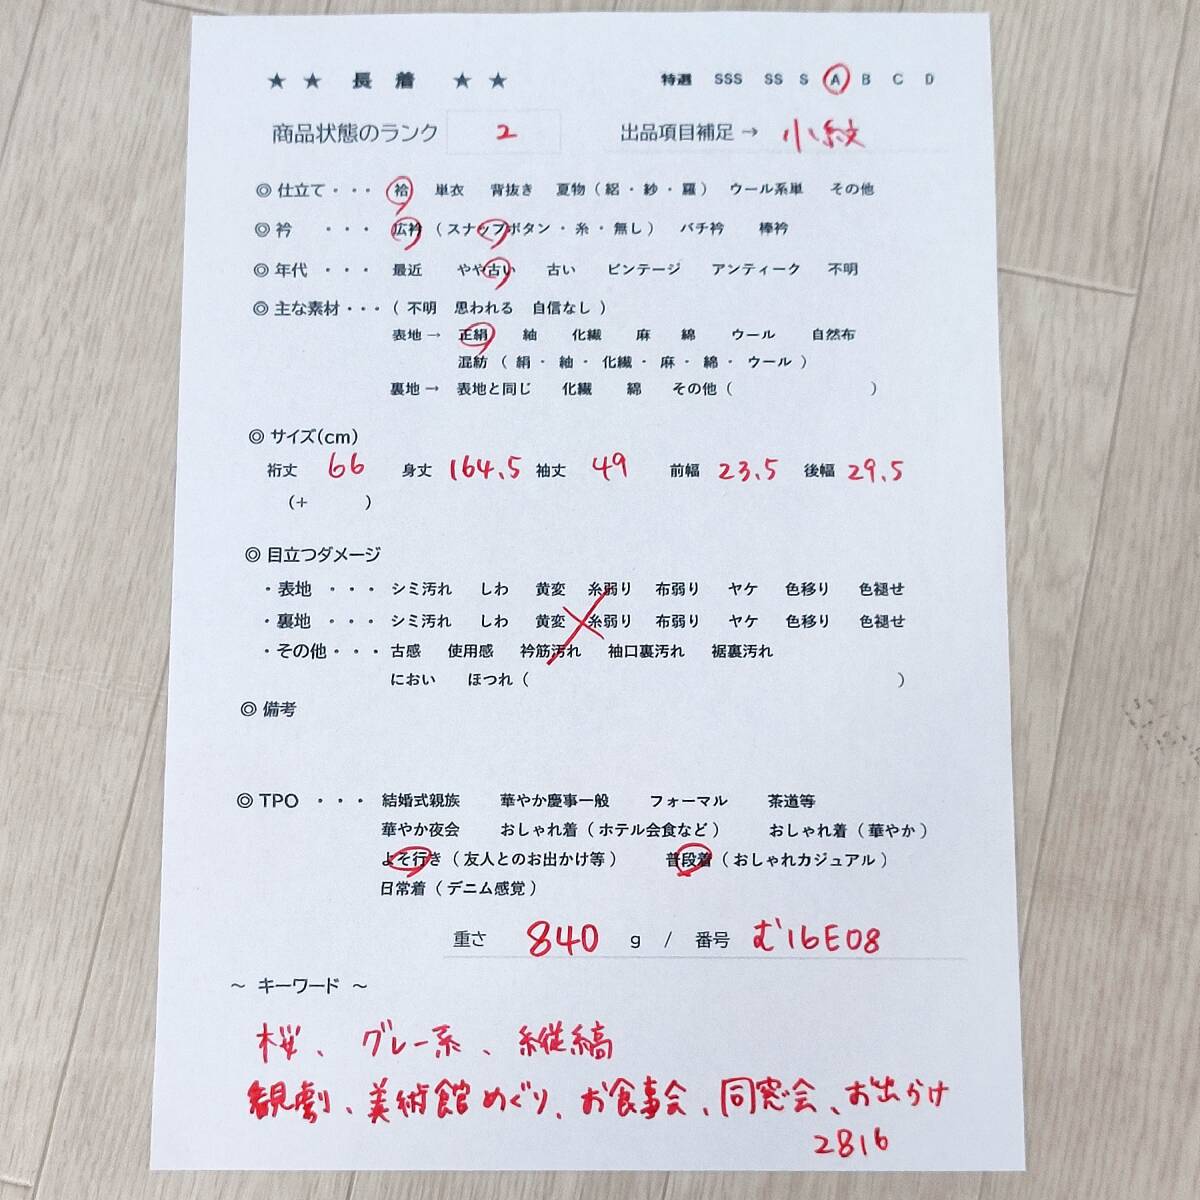 ★ ★ 長 着 ★ ★ 特選 SSS SS S A B C D
商品状態のランク 2 出品項目補足→ 小紋
◎ 仕立て・・・ 袷 単衣 背抜き 夏物(絽・紗・羅) ウール系単 その他
◎ 衿 ・・・ 広衿(スナップボタン・糸・無し) バチ衿 棒衿
◎ 年代 ・・・ 最近 やや古い 古い ビンテージ アンティーク 不明
◎ 主な素材・・・( 不明 思われる 自信なし )
表地→ 正絹 紬 化繊 麻 綿 ウール 自然布
混紡 ( 絹・紬・化繊・麻・綿・ウール )
裏地→ 表地と同じ 化繊 綿 その他( )
◎ サイズ(cm)
裄丈 66 身丈 164.5 袖丈 49 前幅 23.5 後幅 29.5
(+ )
◎ 目立つダメージ
・表地 ・・・ シミ汚れ しわ 黄変 糸弱り 布弱り ヤケ 色移り 色褪せ
・裏地 ・・・ シミ汚れ しわ 黄変 糸弱り 布弱り ヤケ 色移り 色褪せ
・その他・・・ 古感 使用感 衿筋汚れ 袖口裏汚れ 裾裏汚れ
におい ほつれ( )
◎ 備考
◎ TPO ・・・ 結婚式親族 華やか慶事一般 フォーマル 茶道等
華やか夜会 おしゃれ着(ホテル会食など) おしゃれ着(華やか)
よそ行き(友人とのお出かけ等) 普段着(おしゃれカジュアル)
日常着(デニム感覚)
重さ 840 g / 番号 む16E08
~ キーワード ~
桜、グレー系、縦縞
観劇、美術館めぐり、お食事会、同窓会、お出かけ
2816